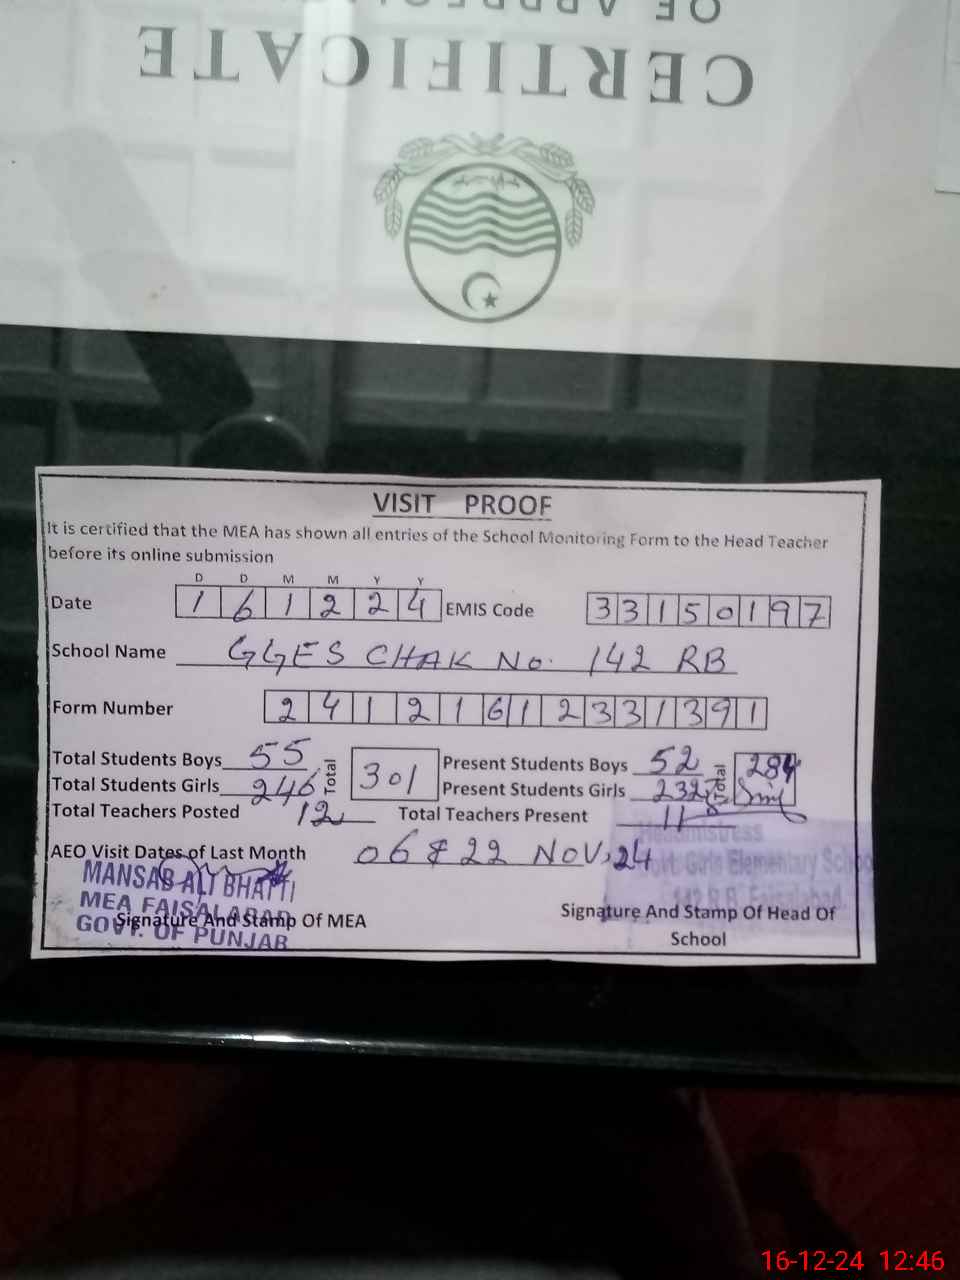 OF
CERTIFICATE
VISIT PROOF
It is certified that the MEA has shown all entries of the School Monitoring Form to the Head Teacher
before its online submission
D D M M Y Y
Date 1 6 1 2 2 4 EMIS Code 3 3 1 5 0 1 9 7
School Name GGES CHAK No. 142 RB
Form Number 2 4 1 2 1 6 1 2 3 3 1 3 9 1
Total Students Boys 55 Total 301 Present Students Boys 52 Total 284
Total Students Girls 246 Present Students Girls 232
Total Teachers Posted 12 Total Teachers Present 11
Headmistress
AEO Visit Dates of Last Month 06 & 22 NOV, 24
Govt. Girls Elementary School
142 R.B. Faisalabad
MANSAB ALI BHATTI
MEA FAISALABAD
GOVT. OF PUNJAB
Signature And Stamp Of MEA
Signature And Stamp Of Head Of
School
16-12-24 12:46